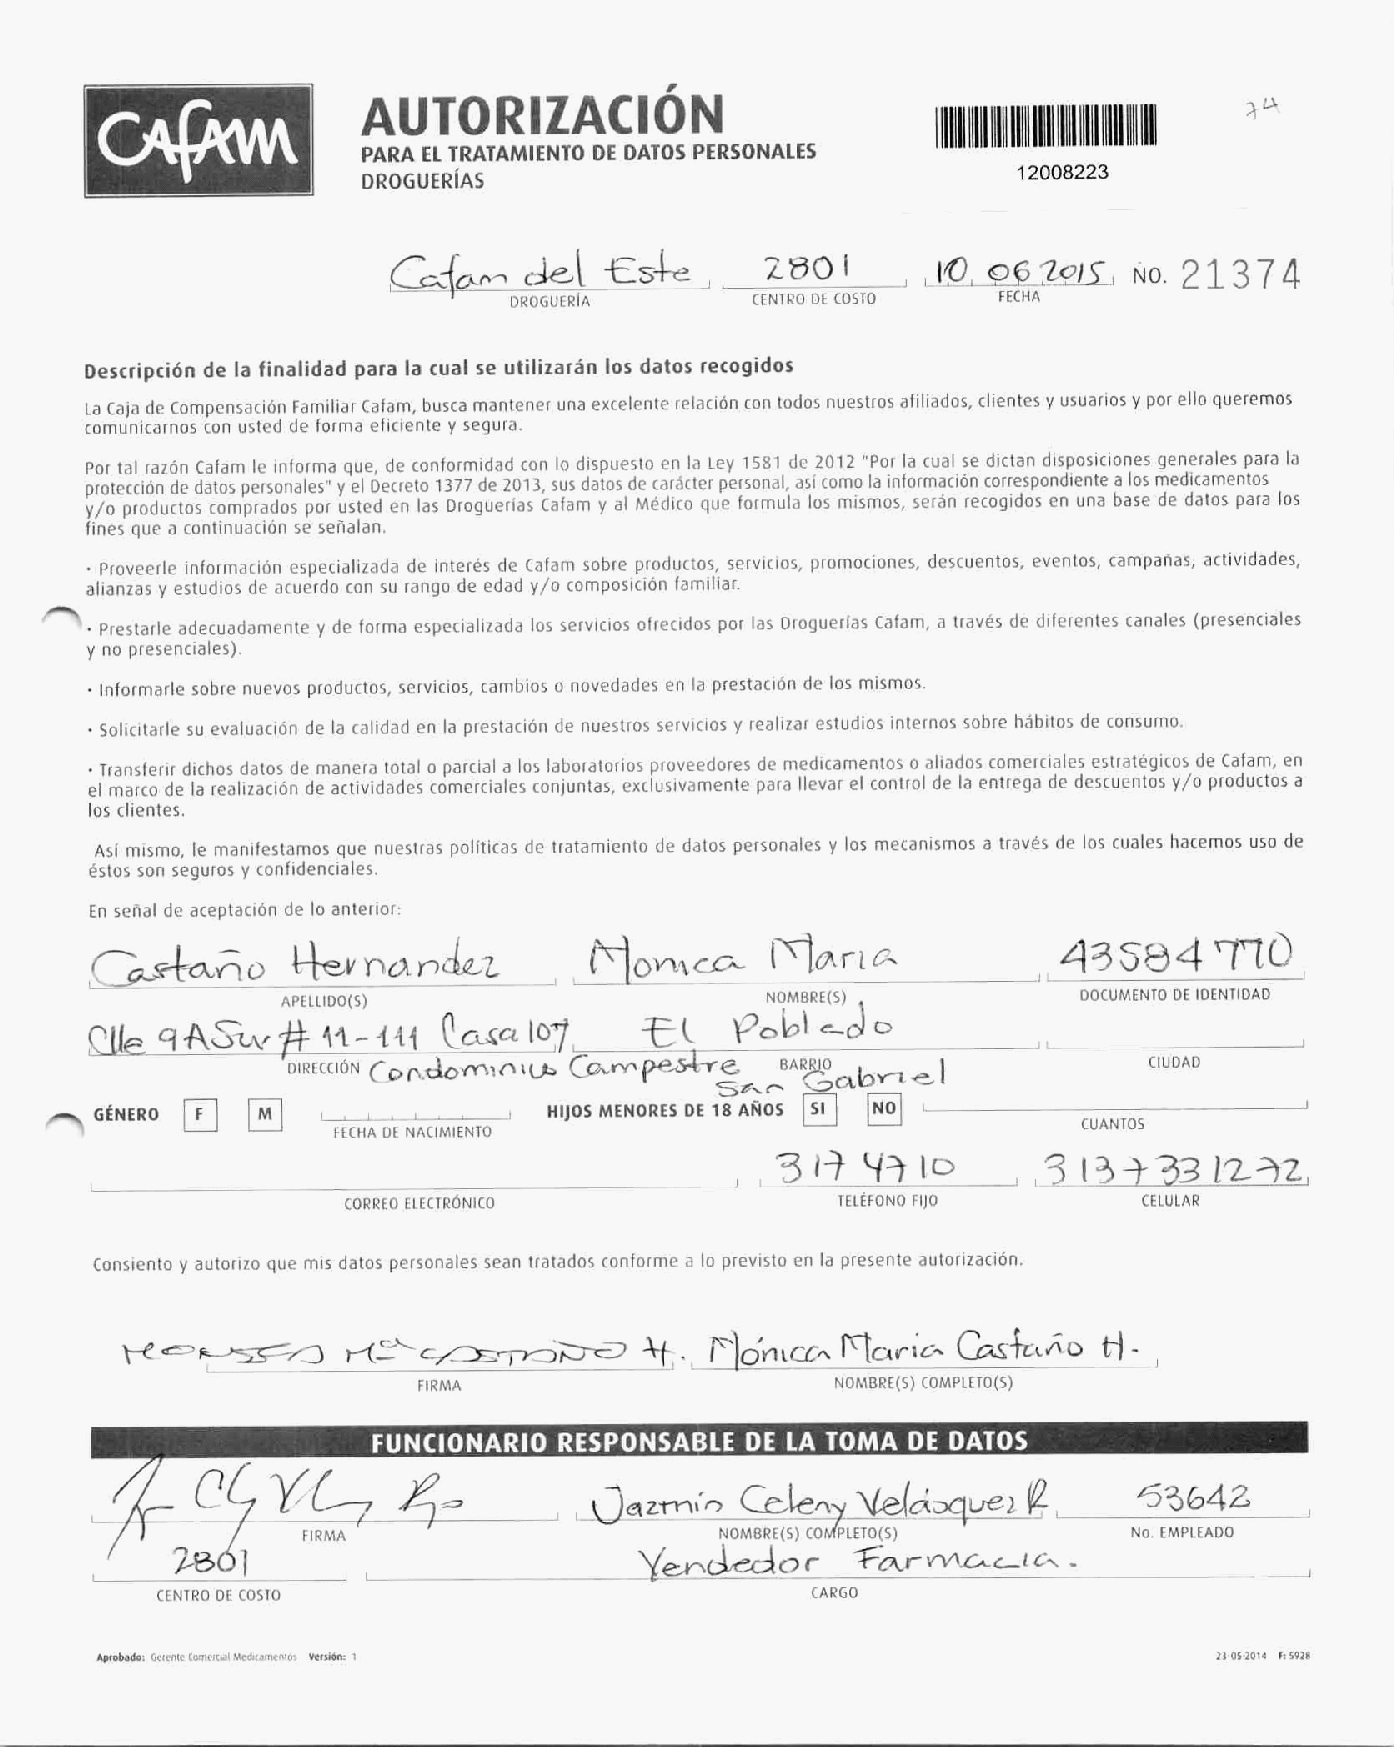 CAFAM
AUTORIZACIÓN
PARA EL TRATAMIENTO DE DATOS PERSONALES
DROGUERÍAS
12008223
74
Cafam del Este 2801 10 06 2015 NO. 21374
DROGUERÍA CENTRO DE COSTO FECHA
Descripción de la finalidad para la cual se utilizarán los datos recogidos
La Caja de Compensación Familiar Cafam, busca mantener una excelente relación con todos nuestros afiliados, clientes y usuarios y por ello queremos
comunicarnos con usted de forma eficiente y segura.
Por tal razón Cafam le informa que, de conformidad con lo dispuesto en la Ley 1581 de 2012 "Por la cual se dictan disposiciones generales para la
protección de datos personales" y el Decreto 1377 de 2013, sus datos de carácter personal, así como la información correspondiente a los medicamentos
y/o productos comprados por usted en las Droguerías Cafam y al Médico que formula los mismos, serán recogidos en una base de datos para los
fines que a continuación se señalan.
· Proveerle información especializada de interés de Cafam sobre productos, servicios, promociones, descuentos, eventos, campañas, actividades,
alianzas y estudios de acuerdo con su rango de edad y/o composición familiar.
· Prestarle adecuadamente y de forma especializada los servicios ofrecidos por las Droguerías Cafam, a través de diferentes canales (presenciales
y no presenciales).
· Informarle sobre nuevos productos, servicios, cambios o novedades en la prestación de los mismos.
· Solicitarle su evaluación de la calidad en la prestación de nuestros servicios y realizar estudios internos sobre hábitos de consumo.
· Transferir dichos datos de manera total o parcial a los laboratorios proveedores de medicamentos o aliados comerciales estratégicos de Cafam, en
el marco de la realización de actividades comerciales conjuntas, exclusivamente para llevar el control de la entrega de descuentos y/o productos a
los clientes.
Así mismo, le manifestamos que nuestras políticas de tratamiento de datos personales y los mecanismos a través de los cuales hacemos uso de
éstos son seguros y confidenciales.
En señal de aceptación de lo anterior:
Castaño Hernandez Monica Maria 43584770
APELLIDO(S) NOMBRE(S) DOCUMENTO DE IDENTIDAD
Clle 9A Sur # 11-111 Casa 107 El Poblado
DIRECCIÓN Condominio Campestre BARRIO CIUDAD
San Gabriel
GÉNERO F M HIJOS MENORES DE 18 AÑOS SI NO
FECHA DE NACIMIENTO CUANTOS
3174710 3137331272
CORREO ELECTRÓNICO TELÉFONO FIJO CELULAR
Consiento y autorizo que mis datos personales sean tratados conforme a lo previsto en la presente autorización.
Mª Castaño H. Mónica Maria Castaño H.
FIRMA NOMBRE(S) COMPLETO(S)
FUNCIONARIO RESPONSABLE DE LA TOMA DE DATOS
Jazmin Celeny Velásquez R 53642
FIRMA NOMBRE(S) COMPLETO(S) No. EMPLEADO
2801 Vendedor Farmacia.
CENTRO DE COSTO CARGO
Aprobado: Gerente Comercial Medicamentos Versión: 1 23-05-2014 F: 5928